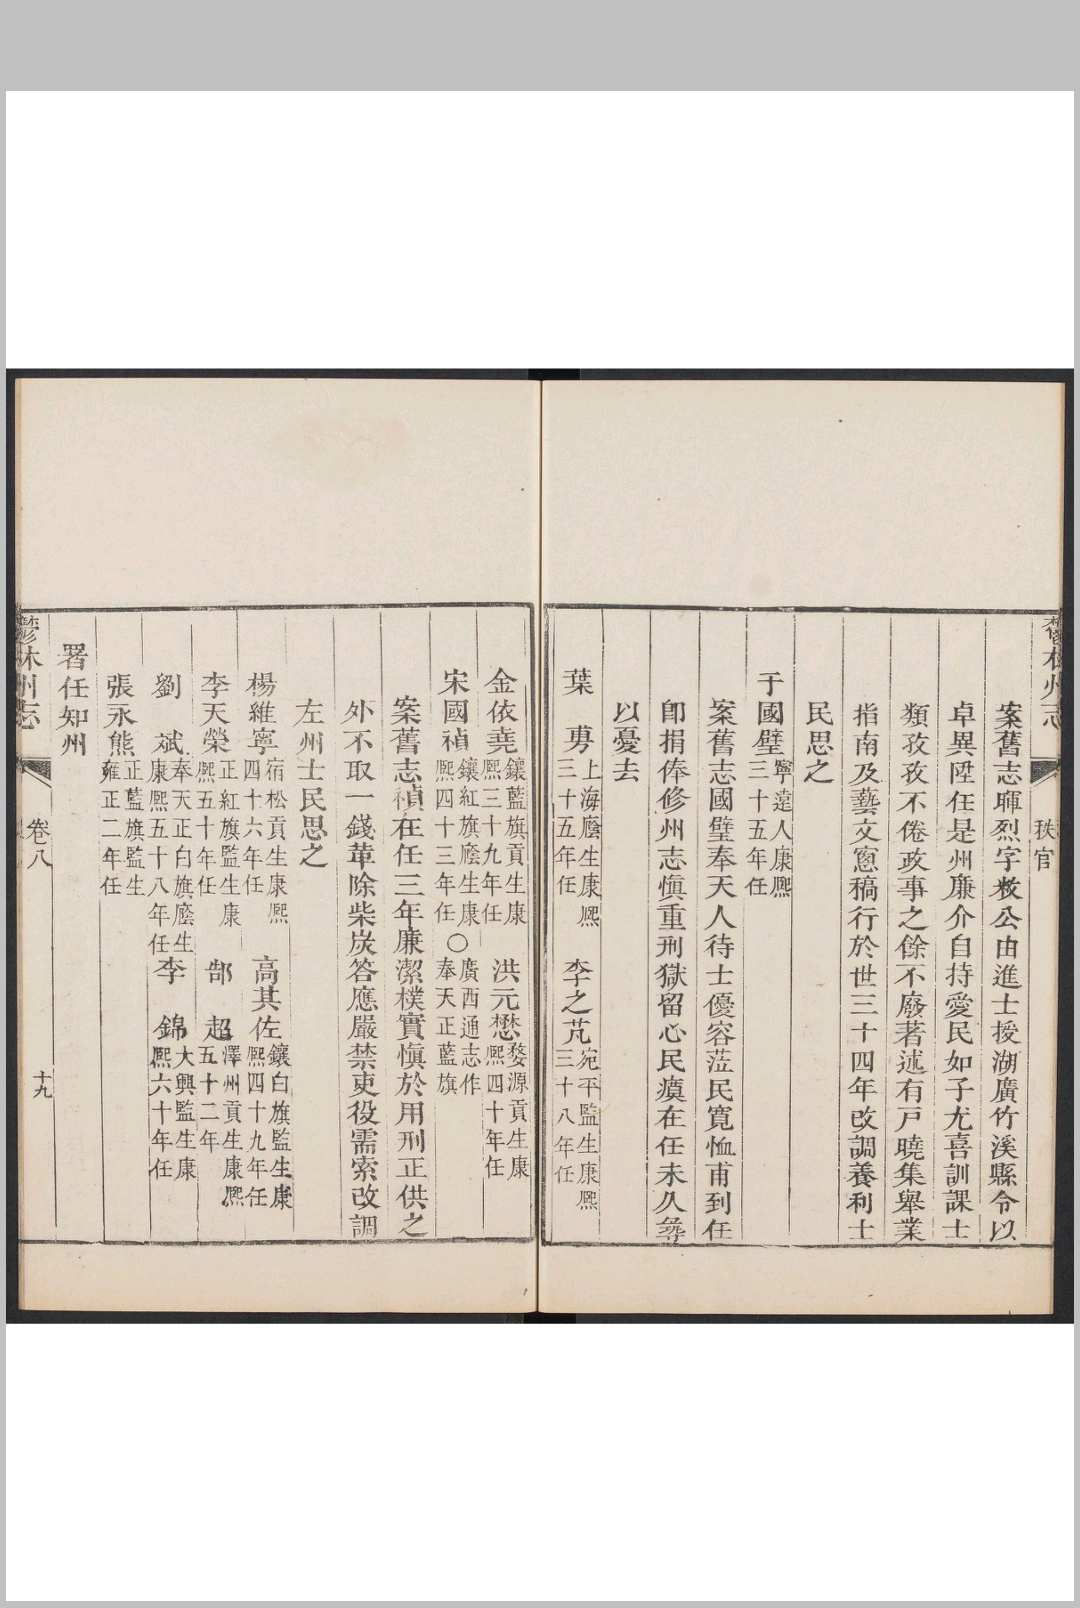 鬱林州志
秩官
案舊志暉烈字敉公由進士授湖廣竹溪縣令以
卓異陞任是州廉介自持愛民如子尤喜訓課士
類孜孜不倦政事之餘不廢著述有戸曉集舉業
指南及藝文窻稿行於世三十四年改調養利士
民思之
于國璧寧遠人康熙
三十五年任
案舊志國璧奉天人待士優容蒞民寬恤甫到任
卽捐俸修州志愼重刑獄留心民瘼在任未久
以憂去
葉 旉上海廕生康熙
三十五年任
李之芃宛平監生康熙
三十八年任
金依堯鑲藍旗貢生康
熙三十九年任
洪元懋婺源貢生康
熙四十年任
宋國禎鑲紅旗廕生康
熙四十三年任
○廣西通志作
奉天正藍旗
案舊志禎在任三年廉潔樸實愼於用刑正供之
外不取一錢葷除柴炭答應嚴禁吏役需索改調
左州士民思之
楊維寧宿松貢生康熙
四十六年任
高其佐鑲白旗監生康
熙四十九年任
李天榮正紅旗監生康
熙五十年任
郜 超澤州貢生康熙
五十二年
劉 斌奉天正白旗廕生
康熙五十八年任
李 錦大興監生康
熙六十年任
張永熊正藍旗監生
雍正二年任
署任知州
鬱林州志
卷八
十九